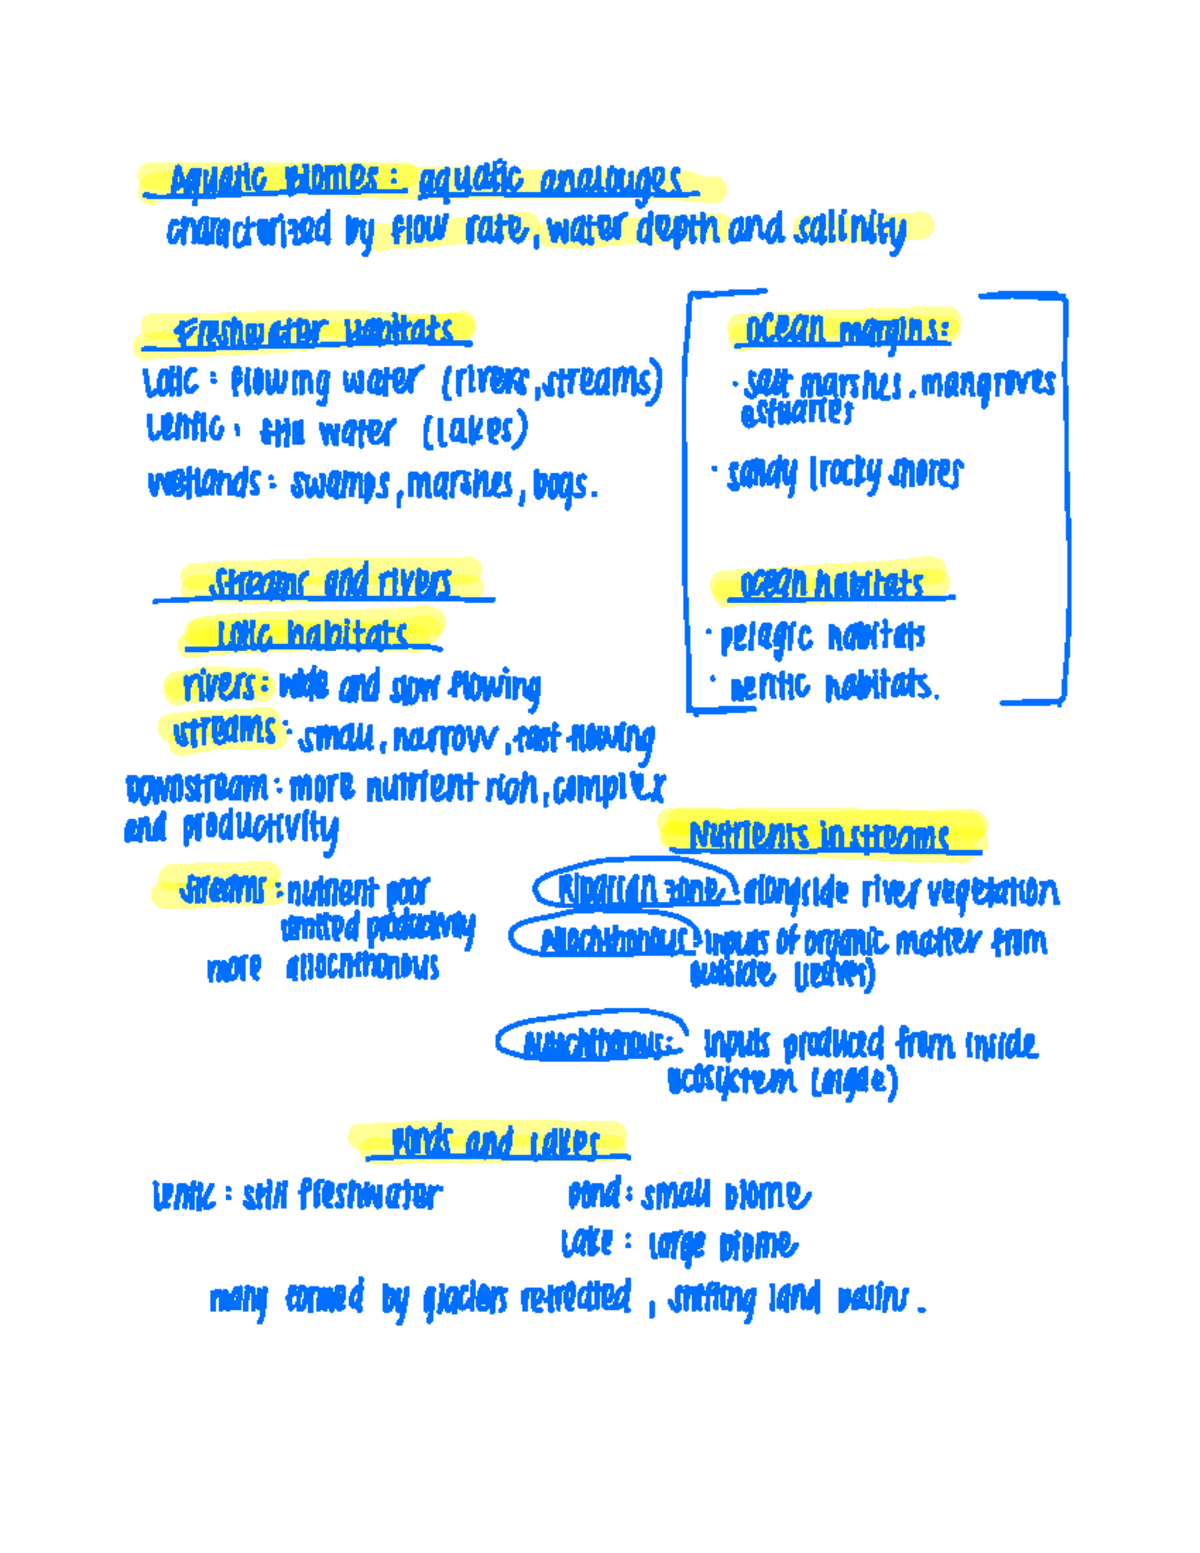 Aquatic Biomes: aquatic analouges
characterized by flow rate, water depth and salinity
Freshwater Habitats
Lotic: Flowing water (rivers, streams)
Lentic: still water (lakes)
Wetlands: swamps, marshes, bogs.
Ocean margins:
· salt marshes. mangroves
estuaries
· sandy / rocky shores
Streams and rivers
Lotic habitats
rivers: wide and slow flowing
streams: small, narrow, fast flowing
Downstream: more nutrient rich, complex
and productivity
Ocean habitats
· pelagic habitats
· neritic habitats.
Nutrients in streams
Streams: nutrient poor
limited productivity
more allochthonous
Riparian zone: alongside river vegetation
Allochthonous: inputs of organic matter from
outside (leaves)
Autochthonous: inputs produced from inside
ecosystem (algae)
Ponds and Lakes
Lentic: still freshwater
pond: small biome
Lake: large biome
many formed by glaciers retreated, shifting land basins.